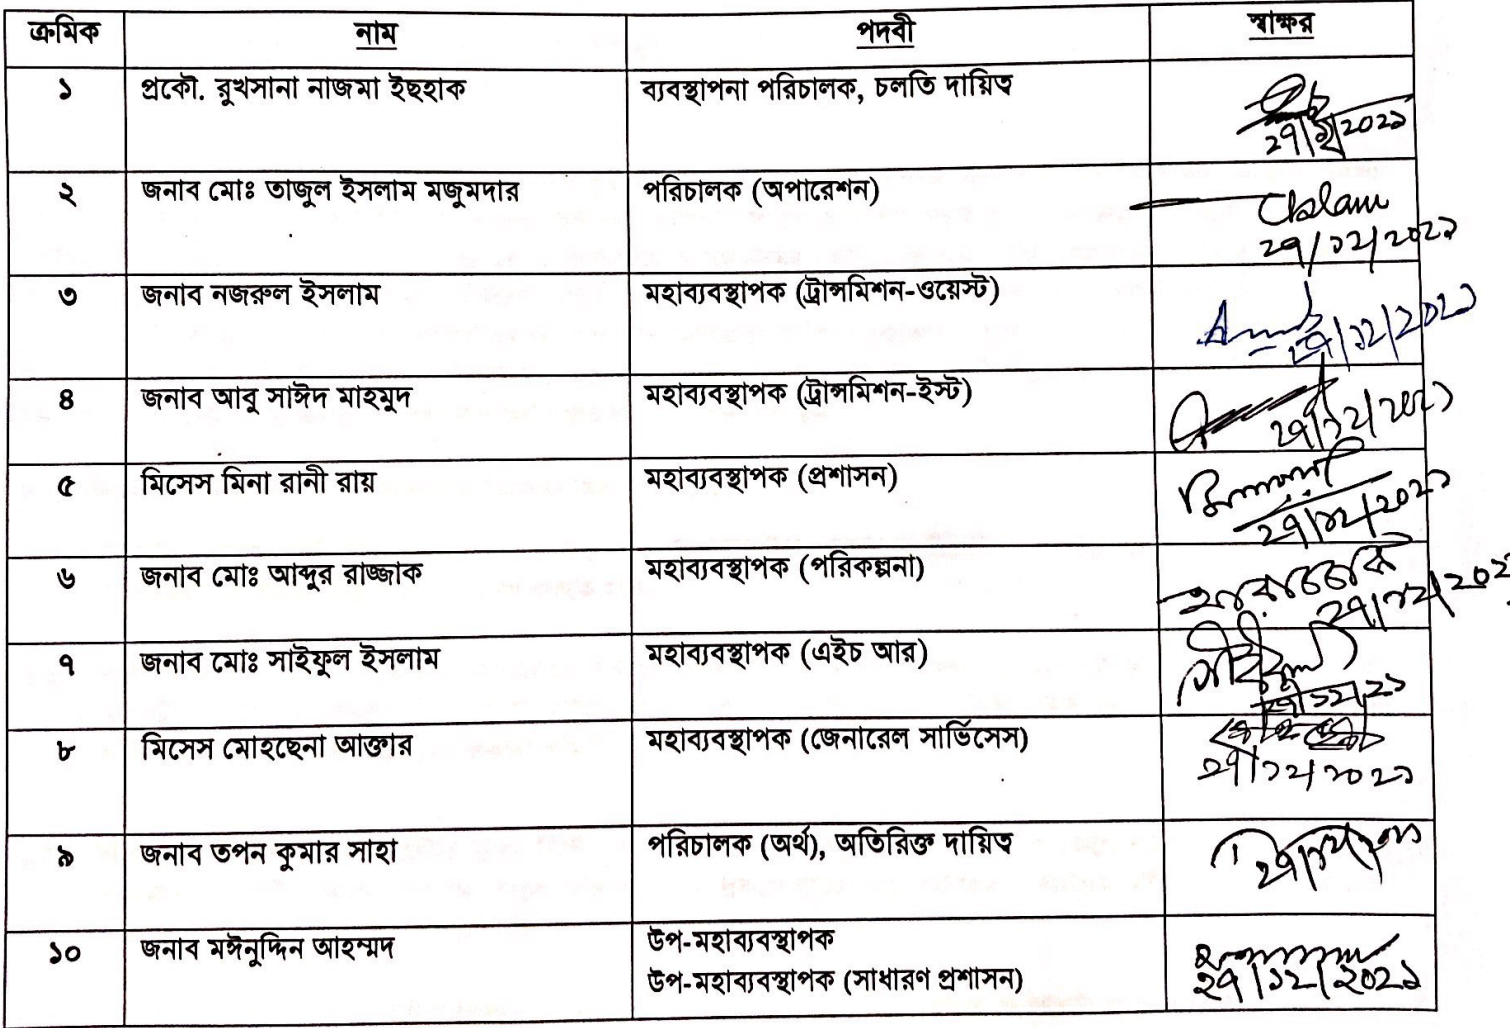 ক্রমিক নাম পদবী স্বাক্ষর
১ প্রকৌ. রুখসানা নাজমা ইছহাক ব্যবস্থাপনা পরিচালক, চলতি দায়িত্ব
২৭/১২/২০২১
২ জনাব মোঃ তাজুল ইসলাম মজুমদার পরিচালক (অপারেশন)
২৭/১২/২০২১
৩ জনাব নজরুল ইসলাম মহাব্যবস্থাপক (ট্রান্সমিশন-ওয়েস্ট)
২৭/১২/২০২১
৪ জনাব আবু সাঈদ মাহমুদ মহাব্যবস্থাপক (ট্রান্সমিশন-ইস্ট)
২৭/১২/২০২১
৫ মিসেস মিনা রানী রায় মহাব্যবস্থাপক (প্রশাসন)
২৭/১২/২০২১
৬ জনাব মোঃ আব্দুর রাজ্জাক মহাব্যবস্থাপক (পরিকল্পনা)
২৭/১২/২০২
৭ জনাব মোঃ সাইফুল ইসলাম মহাব্যবস্থাপক (এইচ আর)
২৭/১২/২১
৮ মিসেস মোহছেনা আক্তার মহাব্যবস্থাপক (জেনারেল সার্ভিসেস)
২৭/১২/২০২১
৯ জনাব তপন কুমার সাহা পরিচালক (অর্থ), অতিরিক্ত দায়িত্ব
১০ জনাব মঈনুদ্দিন আহম্মদ উপ-মহাব্যবস্থাপক
উপ-মহাব্যবস্থাপক (সাধারণ প্রশাসন)
২৭/১২/২০২১